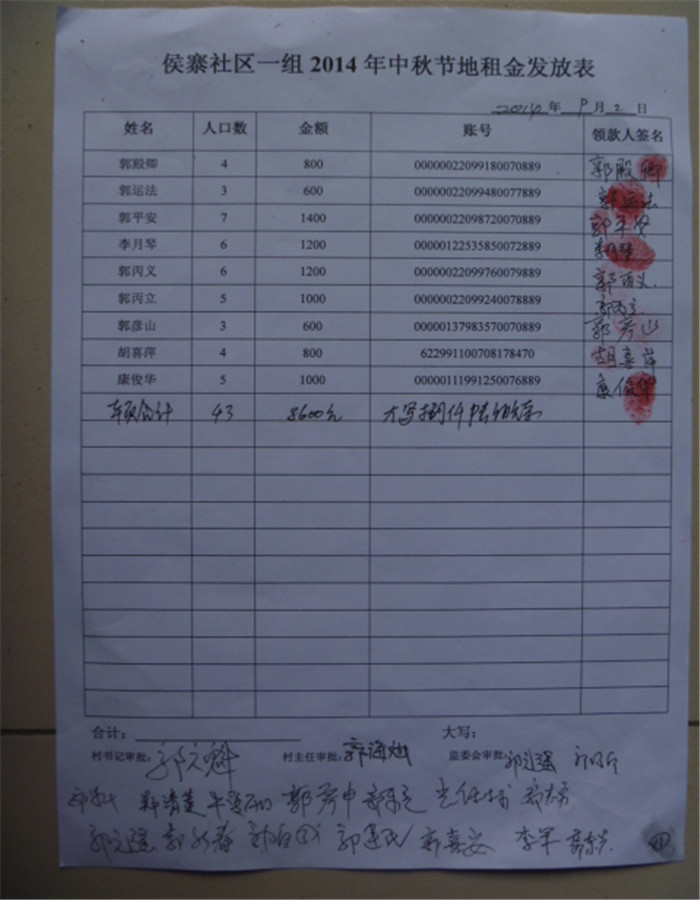 侯寨社区一组 2014 年中秋节地租金发放表
2014 年 9 月 2 日
姓名 人口数 金额 账号 领款人签名
郭殿卿 4 800 00000022099180070889 郭殿卿
郭运法 3 600 00000022099480077889 郭运法
郭平安 7 1400 00000022098720070889 郭平安
李月琴 6 1200 00000122535850072889 李月琴
郭丙义 6 1200 00000022099760079889 郭丙义
郭丙立 5 1000 00000022099240078889 郭丙立
郭彦山 3 600 00000137983570070889 郭彦山
胡喜萍 4 800 622991100708178470 胡喜萍
康俊华 5 1000 00000111991250076889 康俊华
本页合计 43 8600元 大写捌仟陆佰元
合计： 大写：
村书记审批： 村主任审批：郭海灿 监委会审批：
郭彦中
郭建民 郭喜安 李军